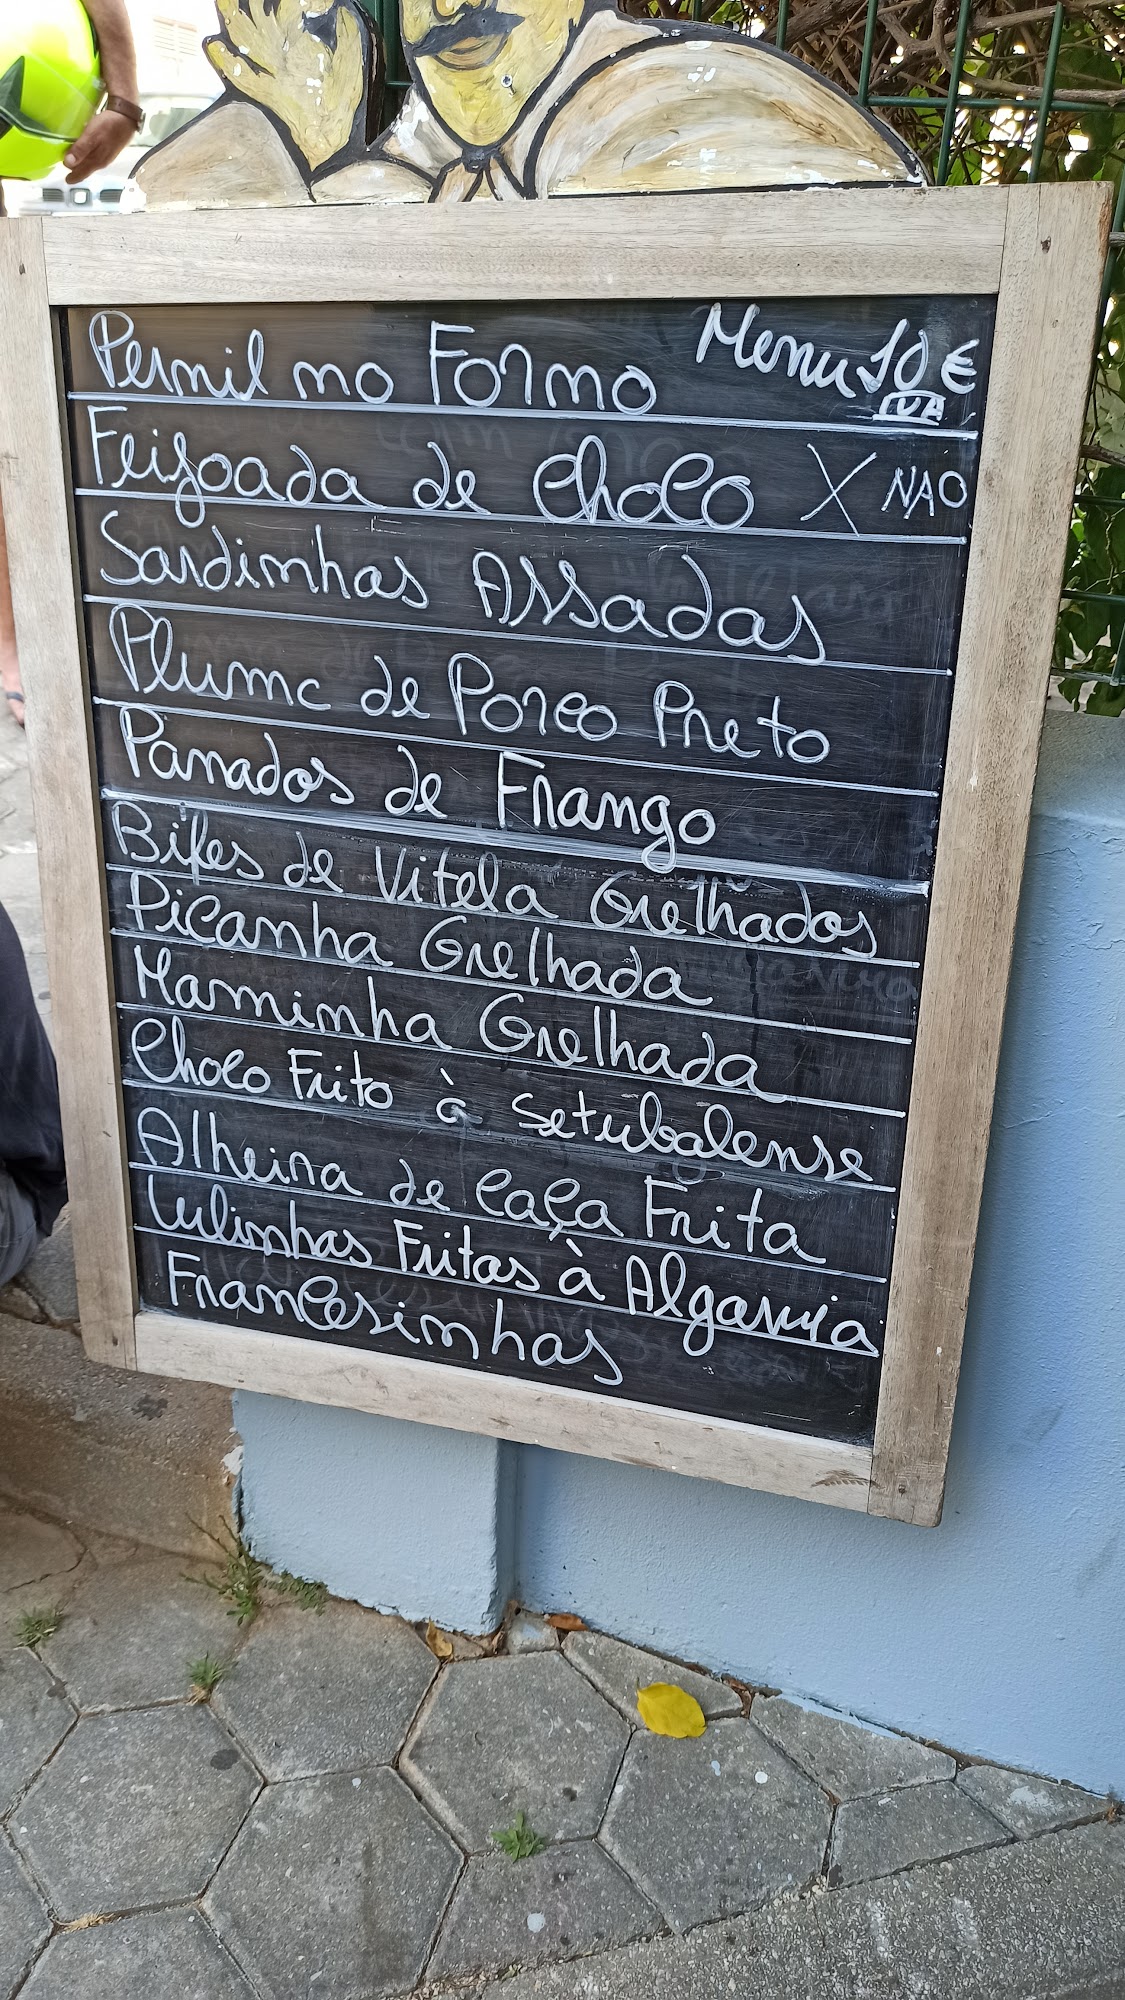 Pernil no Forno Menu 10 €
IVA
Feijoada de Choco X NAO
Sardinhas Assadas
Pluma de Porco Preto
Panados de Frango
Bifes de Vitela Grelhados
Picanha Grelhada
Maminha Grelhada
Choco Frito à Setubalense
Alheira de Caça Frita
Lulinhas Fritas à Algarvia
Francesinhas